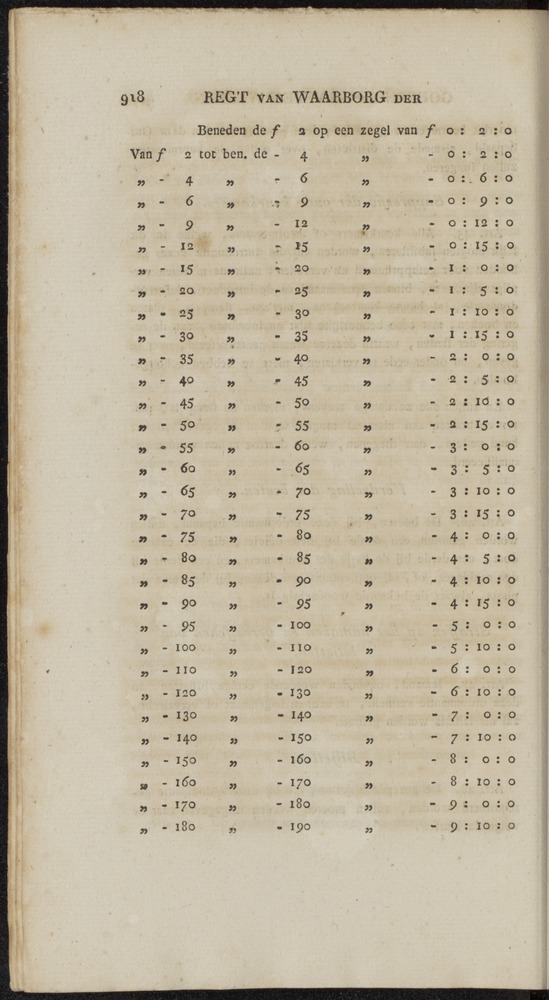 918 REGT VAN WAARBORG DER
Beneden de f 2 op een zegel van f 0 : 2 : 0
Van f 2 tot ben. de - 4 „ - 0 : 2 : 0
„ - 4 „ - 6 „ - 0 : 6 : 0
„ - 6 „ - 9 „ - 0 : 9 : 0
„ - 9 „ - 12 „ - 0 : 12 : 0
„ - 12 „ - 15 „ - 0 : 15 : 0
„ - 15 „ - 20 „ - 1 : 0 : 0
„ - 20 „ - 25 „ - 1 : 5 : 0
„ - 25 „ - 30 „ - 1 : 10 : 0
„ - 30 „ - 35 „ - 1 : 15 : 0
„ - 35 „ - 40 „ - 2 : 0 : 0
„ - 40 „ - 45 „ - 2 : 5 : 0
„ - 45 „ - 50 „ - 2 : 10 : 0
„ - 50 „ - 55 „ - 2 : 15 : 0
„ - 55 „ - 60 „ - 3 : 0 : 0
„ - 60 „ - 65 „ - 3 : 5 : 0
„ - 65 „ - 70 „ - 3 : 10 : 0
„ - 70 „ - 75 „ - 3 : 15 : 0
„ - 75 „ - 80 „ - 4 : 0 : 0
„ - 80 „ - 85 „ - 4 : 5 : 0
„ - 85 „ - 90 „ - 4 : 10 : 0
„ - 90 „ - 95 „ - 4 : 15 : 0
„ - 95 „ - 100 „ - 5 : 0 : 0
„ - 100 „ - 110 „ - 5 : 10 : 0
„ - 110 „ - 120 „ - 6 : 0 : 0
„ - 120 „ - 130 „ - 6 : 10 : 0
„ - 130 „ - 140 „ - 7 : 0 : 0
„ - 140 „ - 150 „ - 7 : 10 : 0
„ - 150 „ - 160 „ - 8 : 0 : 0
„ - 160 „ - 170 „ - 8 : 10 : 0
„ - 170 „ - 180 „ - 9 : 0 : 0
„ - 180 „ - 190 „ - 9 : 10 : 0